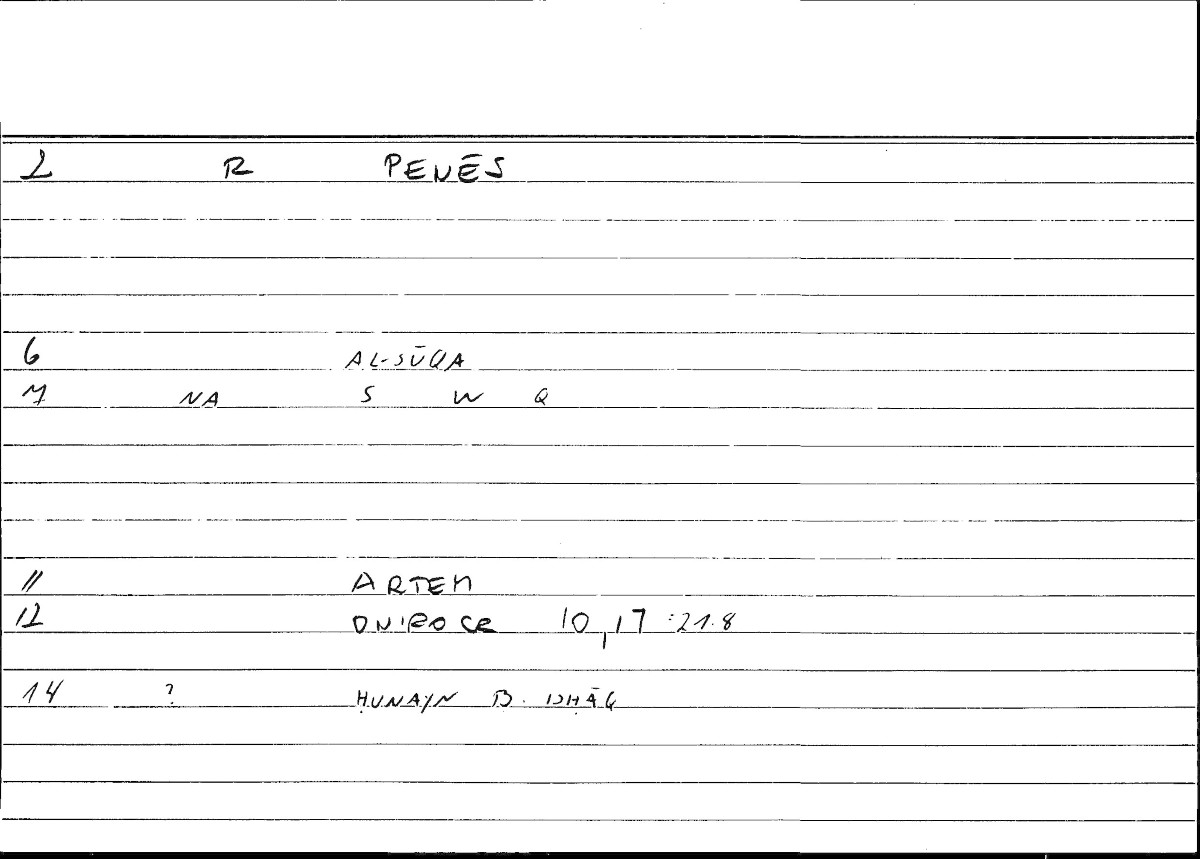 2 R PENĒS
6 AL-SŪQA
7 NA S W Q
11 ARTEM
12 ONIROCR 10,17 :21.8
14 ? ḤUNAYN B. ISḤĀQ